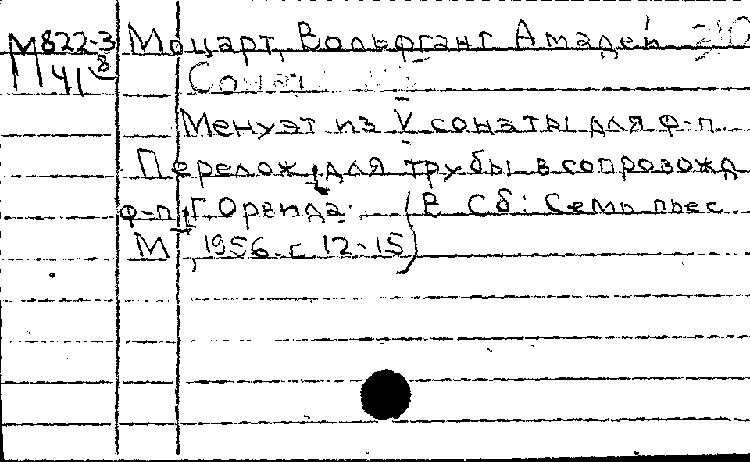 М822-3 Моцарт, Вольфганг Амадей
1141 8
Менуэт из V сонаты для ф-п.
Перелож. для трубы в сопровожд
ф-п. Г. Орвида. (В сб: Семь пьес
М, 1956. с 12-15)